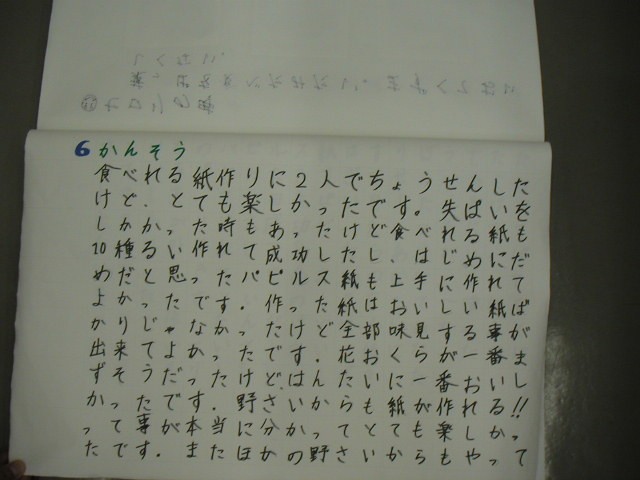 6 かんそう
食べれる紙作りに2人でちょうせんした
けど、とても楽しかったです。失ぱいを
しかかった時もあったけど食べれる紙も
10種るい作れて成功したし、はじめにだ
めだと思ったパピルス紙も上手に作れて
よかったです。作った紙はおいしい紙ば
かりじゃなかったけど全部味見する事が
出来てよかったです。花おくらが一番ま
ずそうだったけど、はんたいに一番おいし
かったです。野さいからも紙が作れる!!っ
て事が本当に分かってとても楽しかっ
たです。またほかの野さいからもやって